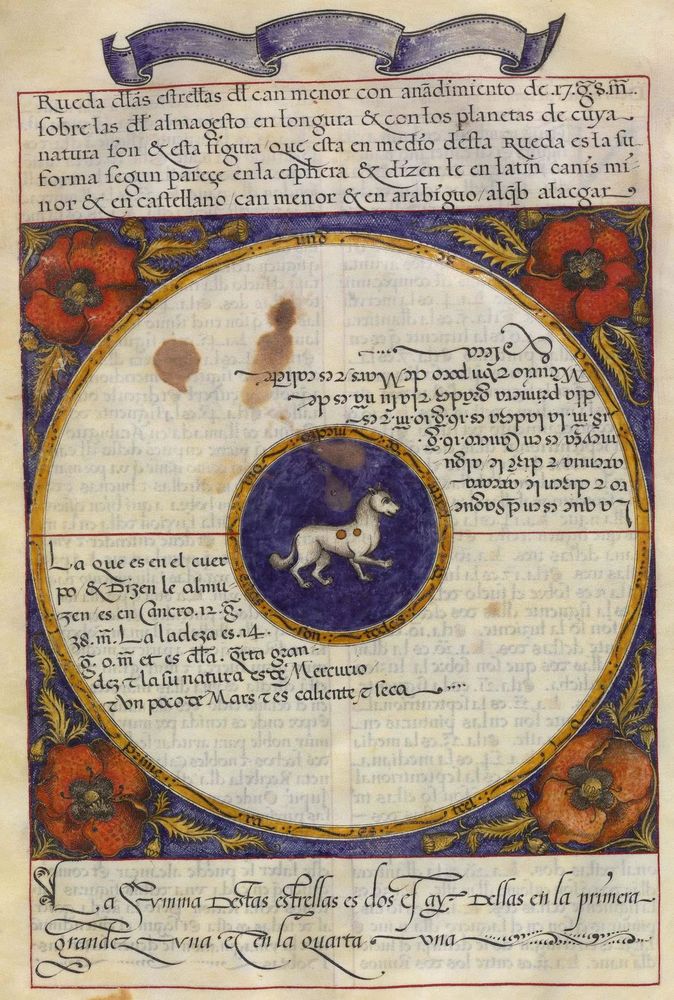 Rueda dllas estrellas dl can menor con anãdimiento de .17.g.8.m̃.
sobre las dl̃ almagesto en longura & con los planetas de cuya
natura son & esta figura que esta en medio desta Rueda es la su
forma segun pareçe en la esphera & dizen le en latin canis mi
nor & en castellano/can menor & en arabiguo/alqb alaçgar
La que es en
ro z dizen le
z dizen le algu
meyza es en Cancro.16.g.
38.m̃. la ladeza es.16.g.10.m̃. z es
dlla primera grãdez z la su nã. es de
Mercurio z vn poco de Mars/z es caliente
& seca
La que es en el cuer
po & Dizen le almu-
zen es en Cancro.12.g.
28.m̃. La ladeza es.14.
g. 0.m̃ et es dlla. qrta gran
dez z la su natura es de Mercurio/
z vn poco de Mars z es caliente z seca
La Summa Destas estrellas es dos El ay. Dellas en la primera
grandez vna et en la quarta vna